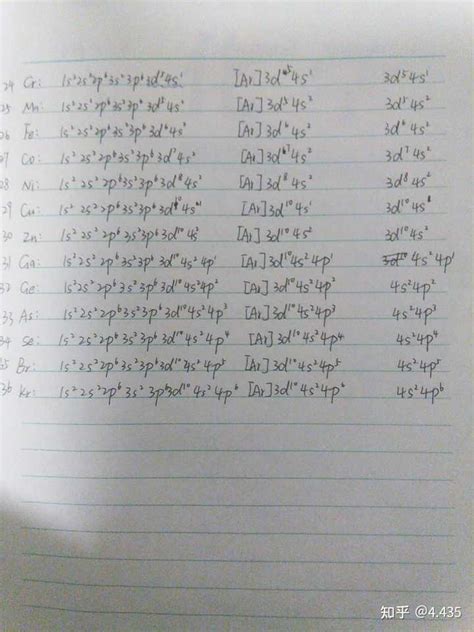 24 Cr: 1s²2s²2p⁶3s²3p⁶3d⁵4s¹ [Ar]3d⁵4s¹ 3d⁵4s¹
25 Mn: 1s²2s²2p⁶3s²3p⁶3d⁵4s² [Ar]3d⁵4s² 3d⁵4s²
26 Fe: 1s²2s²2p⁶3s²3p⁶3d⁶4s² [Ar]3d⁶4s² 3d⁶4s²
27 Co: 1s²2s²2p⁶3s²3p⁶3d⁷4s² [Ar]3d⁷4s² 3d⁷4s²
28 Ni: 1s²2s²2p⁶3s²3p⁶3d⁸4s² [Ar]3d⁸4s² 3d⁸4s²
29 Cu: 1s²2s²2p⁶3s²3p⁶3d¹⁰4s¹ [Ar]3d¹⁰4s¹ 3d¹⁰4s
30 Zn: 1s²2s²2p⁶3s²3p⁶3d¹⁰4s² [Ar]3d¹⁰4s² 3d¹⁰4s²
31 Ga: 1s²2s²2p⁶3s²3p⁶3d¹⁰4s²4p¹ [Ar]3d¹⁰4s²4p¹ 4s²4p¹
32 Ge: 1s²2s²2p⁶3s²3p⁶3d¹⁰4s²4p² [Ar]3d¹⁰4s²4p² 4s²4p²
33 As: 1s²2s²2p⁶3s²3p⁶3d¹⁰4s²4p³ [Ar]3d¹⁰4s²4p³ 4s²4p³
34 Se: 1s²2s²2p⁶3s²3p⁶3d¹⁰4s²4p⁴ [Ar]3d¹⁰4s²4p⁴ 4s²4p⁴
35 Br: 1s²2s²2p⁶3s²3p⁶3d¹⁰4s²4p⁵ [Ar]3d¹⁰4s²4p⁵ 4s²4p⁵
36 Kr: 1s²2s²2p⁶3s²3p⁶3d¹⁰4s²4p⁶ [Ar]3d¹⁰4s²4p⁶ 4s²4p⁶
知乎 @4.435